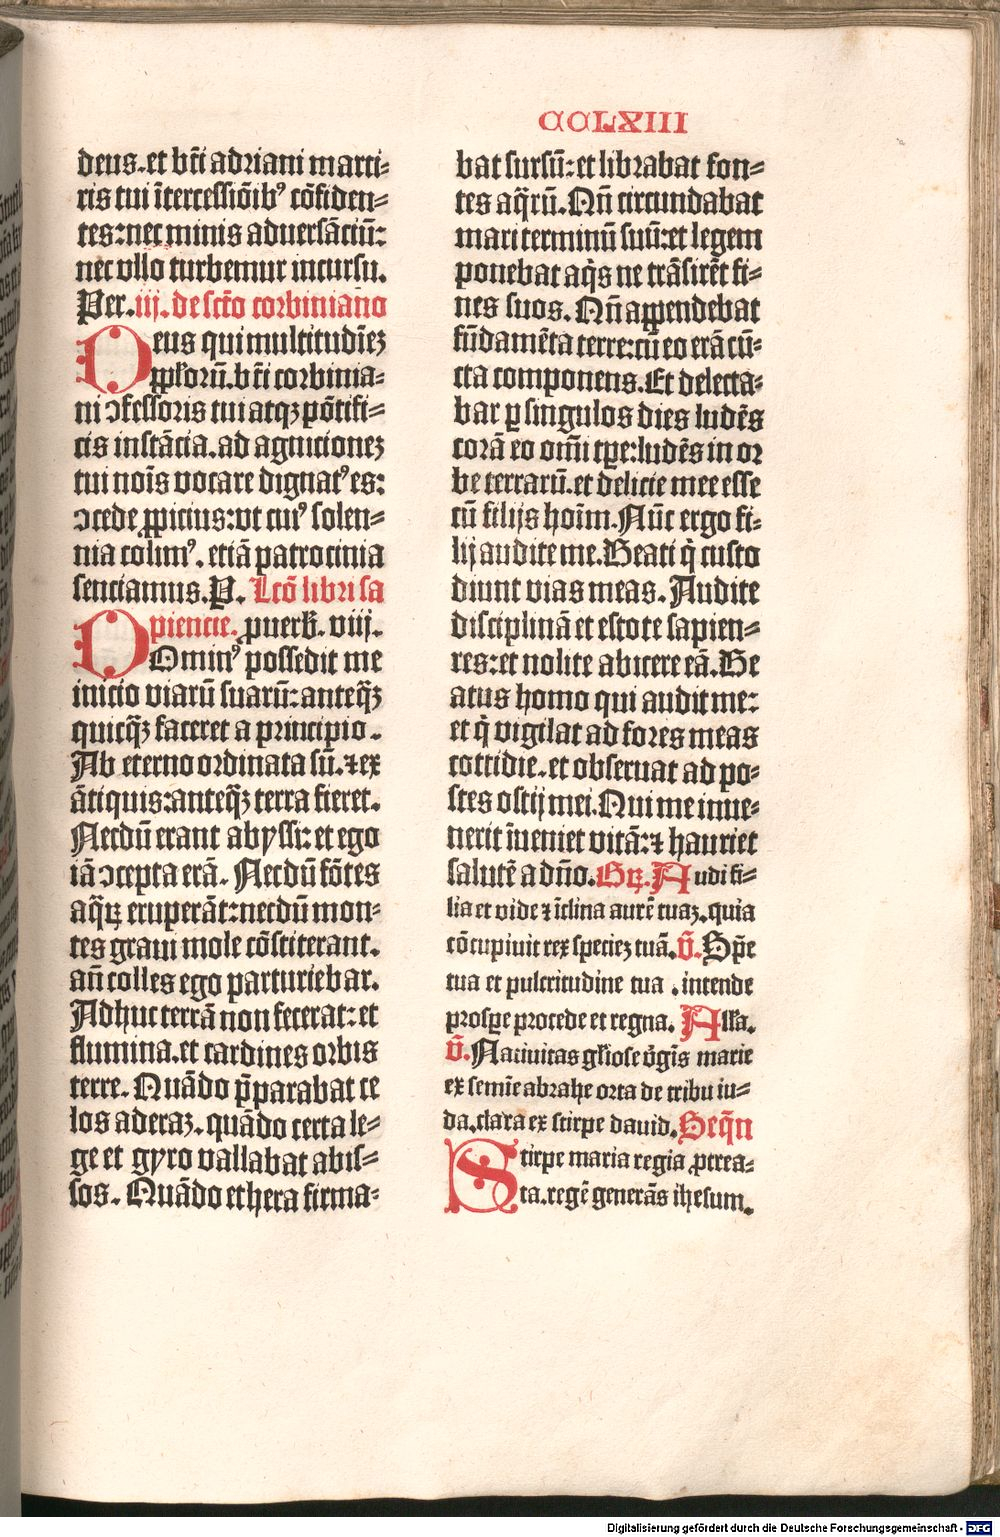 CCLXIII
deus. et bt̄i adriani marti⸗
ris tui ītercessiōibꝰ cōfiden⸗
tes: nec minis aduersāciū:
nec vllo turbemur incursu.
Per. iij. de sct̄o corbiniano
Deus qui multitudīeꝫ
ꝓpl̄orū. bt̄i corbinia⸗
ni ↄfessoris tui atqꝫ pōtifi⸗
cis instācia. ad agnicioneꝫ
tui noīs vocare dignatꝰ es:
ↄcede ꝓpicius: vt cuiꝰ solen⸗
nia colimꝰ. etiā patrocinia
senciamus. P. Lcō libri sa
piencie. ꝓuerb̄. viij.
Dominꝰ possedit me
inicio viarū suarū: anteq̄ꝫ
quicq̄ꝫ faceret a principio.
Ab eterno ordinata sū. ⁊ ex
ātiquis: anteq̄ꝫ terra fieret.
Necdū erant abyssi: et ego
iā ↄcepta erā. Necdū fōtes
aq̄ꝝ eruperāt: necdū mon⸗
tes graui mole cōstiterant.
an̄ colles ego parturiebar.
Adhuc terrā non fecerat: et
flumina. et cardines orbis
terre. Quādo p̄parabat ce
los aderaꝫ. quādo certa le⸗
ge et gyro vallabat abis⸗
sos. Quādo ethera firma⸗
bat sursū: et librabat fon⸗
tes aq̄rū. Qn̄ circundabat
mari terminū suū: et legem
ponebat aq̄s ne trāsirēt fi⸗
nes suos. Qn̄ appendebat
fūdamēta terre: cū eo erā cū⸗
cta componens. Et delecta⸗
bar ꝑ singulos dies ludēs
corā eo om̄i tꝑe: ludēs in or
be terrarū. et delicie mee esse
cū filijs hoīm. Nūc ergo fi⸗
lij audite me. Beati q̇ custo
diunt vias meas. Audite
disciplinā et estote sapien⸗
tes: et nolite abicere eā. Be
atus homo qui audit me:
et q̇ vigilat ad fores meas
cottidie. et obseruat ad po⸗
stes ostij mei. Qui me inue⸗
nerit īueniet vitā: ⁊ hauriet
salutē a dn̄o. Gꝝ. Audi fi⸗
lia et vide ⁊ īclina aurē tuaꝫ. quia
cōcupiuit rex specieꝫ tuā. v̄. Spe̅
tua et pulcritudine tua. intende
prosꝑe procede et regna. All̄a.
v̄. Natiuitas gl̄iose v̄gīs marie
ex semīe abrahe orta de tribu iu⸗
da. clara ex stirpe dauid. Seq̄n
Stirpe maria regia ꝓcrea⸗
ta. regē generās ihesum.
Digitalisierung gefördert durch die Deutsche Forschungsgemeinschaft - DFG